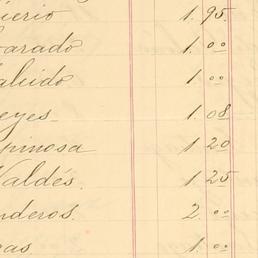 ierio 1.95.
arado 1.00
alcido 1.00
eyes 1.08
spinosa 1 20
Valdés. 1 25
nderos. 2.00
as 1.00